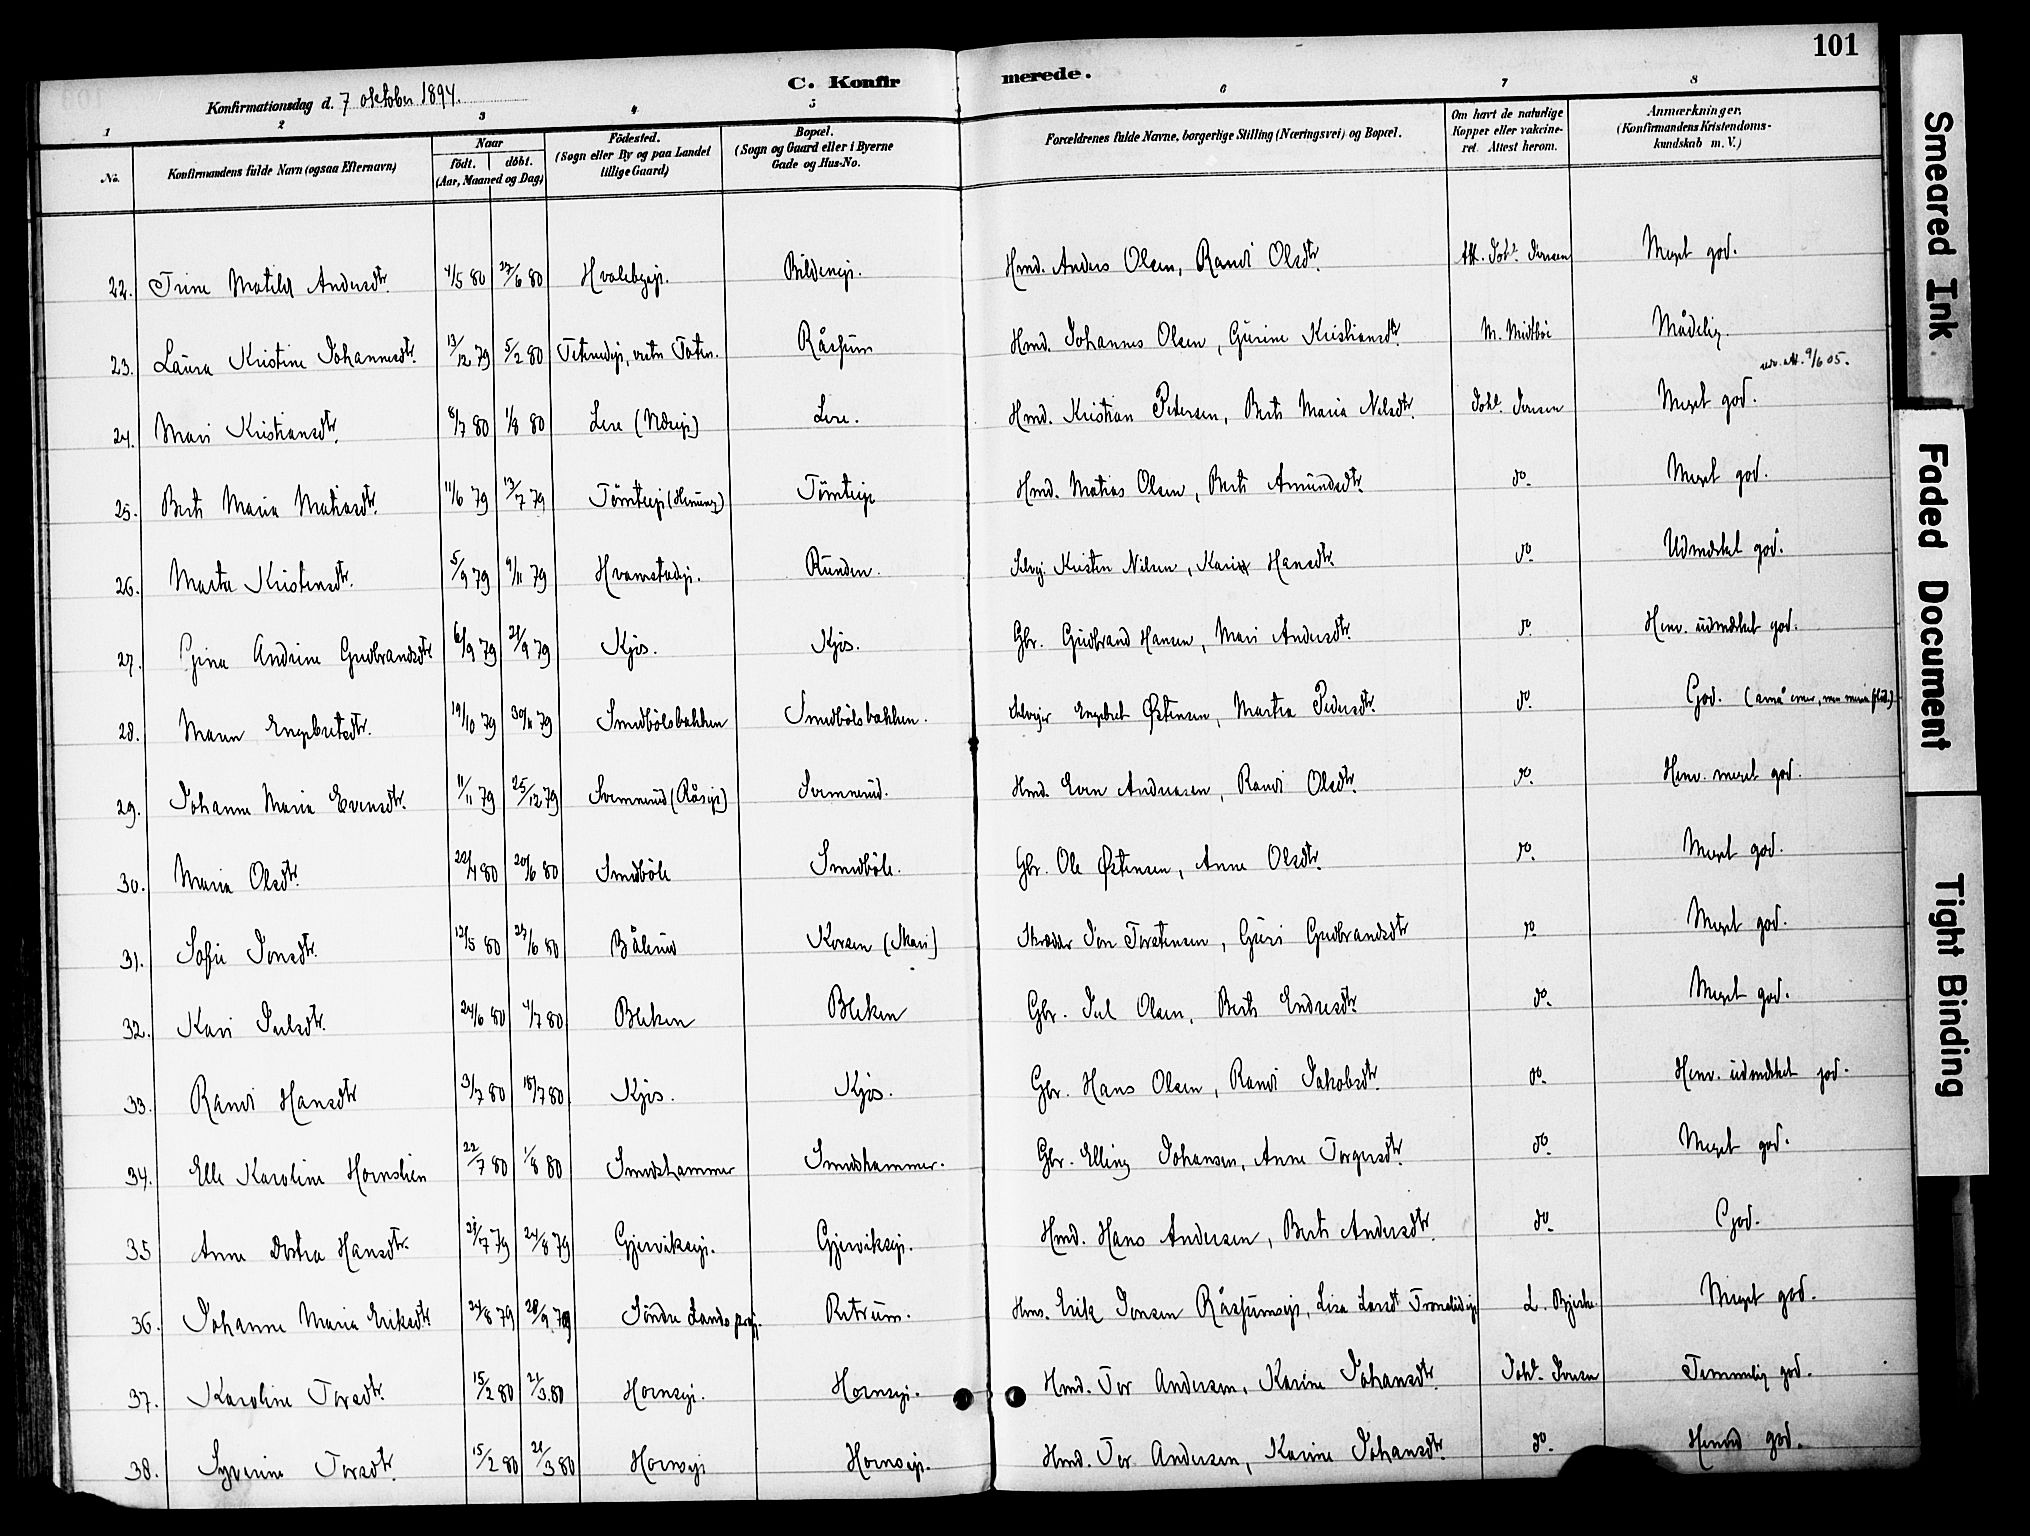 101
C. Konfir merede.
Konfirmationsdag d. 7 oktober 1894.
1 2 3 4 5 6 7 8
No. Konfirmandens fulde Navn (ogsaa Efternavn) Naar födt. döbt. (Aar, Maaned og Dag) Födested. (Sogn eller By og paa Landet tillige Gaard) Bopæl. (Sogn og Gaard eller i Byerne Gade og Hus-No. Forældrenes fulde Navne, borgerlige Stilling (Næringsvei) og Bopæl. Om havt de naturlige Kopper eller vakcineret. Attest herom. Anmærkninger. (Konfirmandens Kristendomskundskab m. V.)
22. Trine Matild Andersdtr. 4/5 80 27/6 80 Hvalebyejs. Bildenejs. Hmd. Anders Olsen, Randi Olsdtr. Att. Johs. Jensen Meget god.
23. Laura Kristine Johannesdtr. 13/12 79 5/2 80 vestre Toten. Råssum Hmd. Johannes Olsen, Gurine Kristiansdtr. M. Midtböe Mådelig.
udv. att. 9/6 05.
24. Mari Kristiansdtr. 8/7 80 1/8 80 Lere Lere. Hmd. Kristian Petersen, Berte Maria Nilsdtr. Johs. Jensen Meget god.
25. Berte Maria Matiasdtr. 11/6 79 13/7 79 Tömteejs Tömteejs Hmd. Matias Olsen, Berte Amundsdtr. do. Meget god.
26. Marta Kristensdtr. 5/9 79 9/11 79 Hvamstadejs. Runden. Selvej. Kristen Nilsen, Kari Hansdtr. do. Udmærket god.
27. Gina Andrine Gudbrandsdtr 6/9 79 21/9 79 Kjos. Kjos. Gbr. Gudbrand Hansen, Mari Andersdtr. do Henv. udmærket god.
28. Maren Engebretsdtr. 19/10 79 30/11 79 Smedbölsbakken Smedbölsbakken. Selvejer Engebret Østensen, Martea Pedersdtr. do. God. (små evner, men megen flid.)
29. Johanne Maria Evensdtr. 11/11 79 25/12 79 Svemnerud (Råsejs) Svemnerud. Hmd. Even Andreasen, Randi Olsdtr. do. Henv. meget god.
30. Maria Olsdtr. 22/4 80 20/6 80 Smedböle Smedböle. Gbr. Ole Østensen, Anne Olsdtr. do. Meget god.
31. Sofie Jonsdtr. 12/5 80 27/6 80 Bålerud Korsen (Skari) Skrædder Jon Torstensen, Guri Gudbrandsdtr do Meget god.
32. Kari Julsdtr. 24/6 80 4/7 80 Bleken Bleken Gbr. Jul Olsen, Berte Endresdtr. do. Meget god.
33. Randi Hansdtr 3/7 80 18/7 80 Kjos. Kjos. Gbr. Hans Olsen, Randi Jakobsdtr. do. Henv. udmærket god.
34. Elle Karoline Hornslien 22/7 80 1/8 80 Smedshammer Smedshammer. Gbr. Elling Johansen, Anne Torgersdtr. do. Meget god.
35 Anne Dortea Hansdtr. 28/7 79 24/8 79 Gjerviksejs. Gjerviksejs. Hmd. Hans Andersen, Berte Andersdtr. do. God.
36. Johanne Maria Eriksdtr 24/8 79 28/9 79 Söndre Lands prgj. Retrum. Hms. Erik Jonsen Råssumsejs, Lisa Larsdtr. L. Bjerke. Meget god.
37. Karoline Torsdtr. 15/2 80 21/3 80 Hornsejs. Hornsejs. Hmd. Tor Andersen, Karine Johansdtr. Johs. Jensen Temmelig god.
38. Syverine Torsdtr. 15/2 80 21/3 80 Hornsejs Hornsejs. Hmd. Tor Andersen, Karine Johansdtr. do. Henved god.
Smeared Ink
Faded Document
Tight Binding